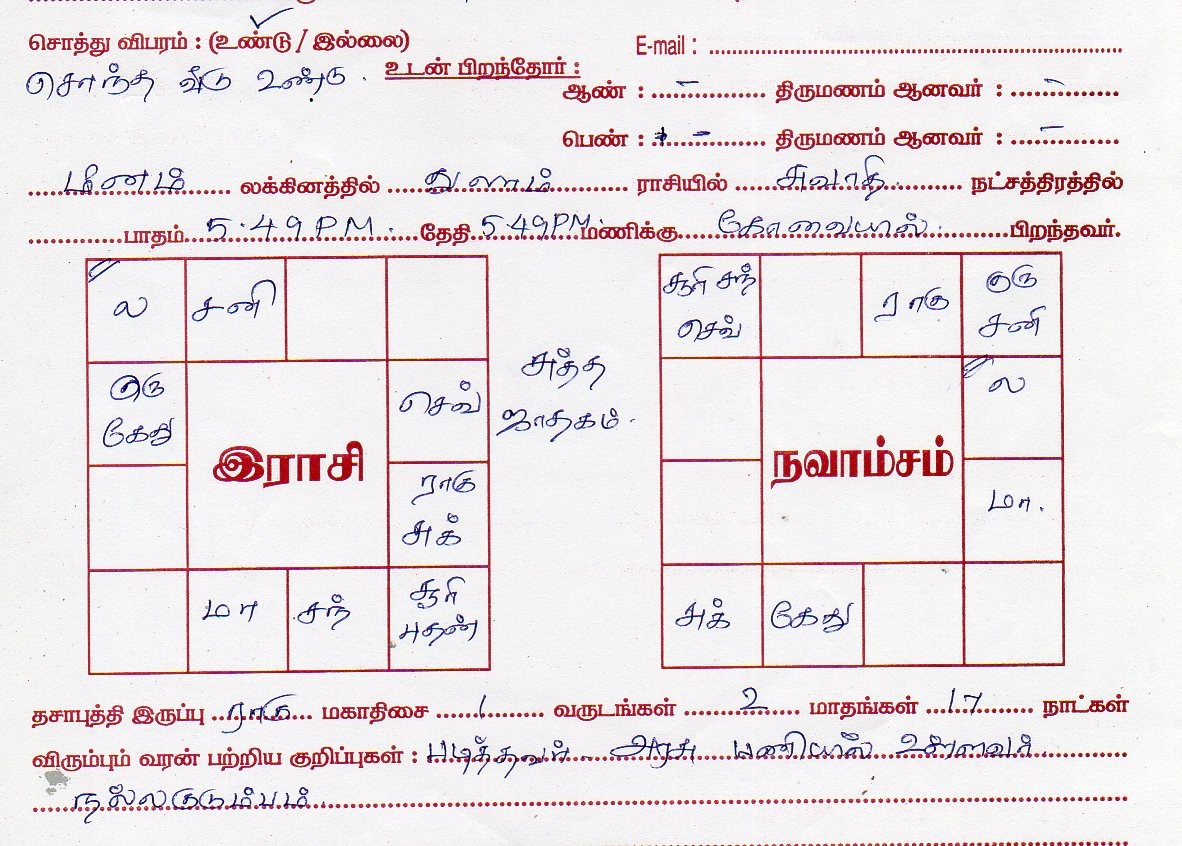 சொத்து விபரம் : (உண்டு / இல்லை)
E-mail :
சொந்த வீடு உண்டு.
உடன் பிறந்தோர் :
ஆண் : – திருமணம் ஆனவர் : –
பெண் : – திருமணம் ஆனவர் : –
மீனம் லக்கினத்தில் துலாம் ராசியில் சுவாதி நட்சத்திரத்தில்
பாதம் 5.49PM. தேதி 5.49PM. மணிக்கு கோவையில் பிறந்தவர்.
ல சனி
குரு கேது
செவ்
ராகு சுக்
மா சந் சூரி புதன்
இராசி
சுத்த ஜாதகம்.
சூரி சந் செவ் ராகு குரு சனி
ல
மா.
சுக் கேது
நவாம்சம்
தசாபுத்தி இருப்பு ராகு மகாதிசை 1 வருடங்கள் 2 மாதங்கள் 17 நாட்கள்
விரும்பும் வரன் பற்றிய குறிப்புகள் : படித்தவர் அரசு பணியில் உள்ளவர்
நல்லகுடும்பம்